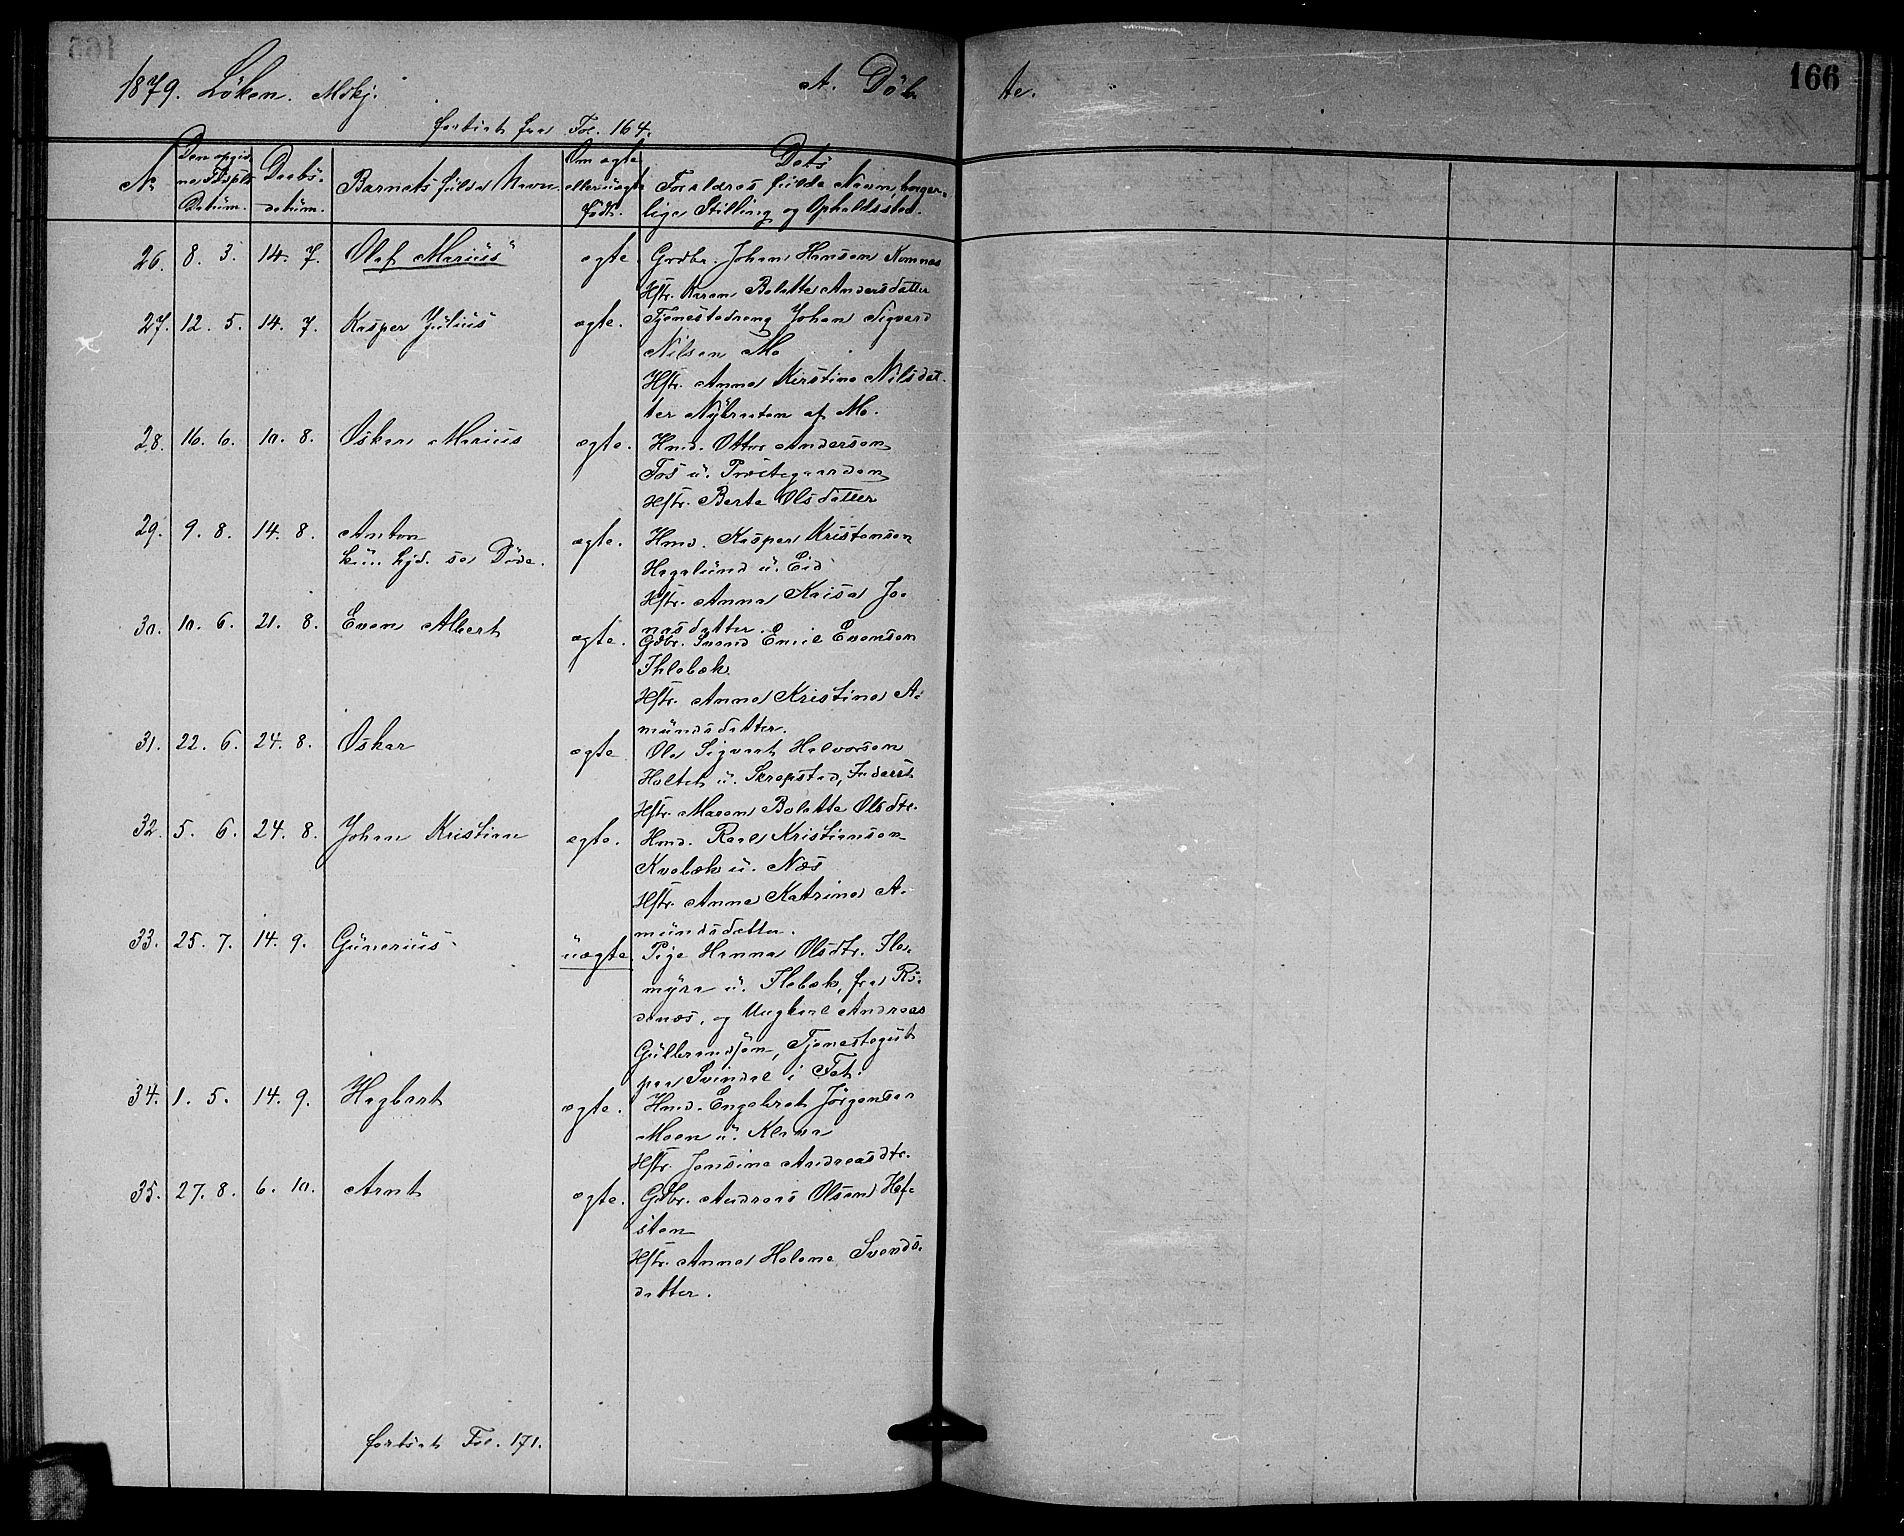 166
1879. Löken. Mskj. A. Döbte.
fortsat fra Fol. 164.
No. Den opgivne Födsels Datum. Daabsdatum. Barnets fulde Navn Om ægte eller uægte födt. Dets Forældres fulde Navn, borgerlige Stilling og Opholdssted.
26. 8. 3. 14. 7. Olaf Marius ægte Grdbr. Johan Hansen Komnæs
Hstr. Karen Bolette Andersdatter
27. 12. 5. 14. 7. Kasper Julius ægte. Tjenestedreng Johan Sigvard
Nilsen Mo
Hstr. Anna Kirstine Nilsdat-
ter Nybraaten af Mo.
28. 16. 6. 10. 8. Oskar Marius ægte. Hmd. Otter Andersen
Fos u. Præstegaarden
Hstr. Berte Olsdatter
29. 9. 8. 14. 8. Anton ægte. Hmd. Kasper Kristensen
kun hjd. se Döde. Hagalund u. Eid
Hstr. Anna Kaisa Jo-
nasdatter.
30. 10. 6. 21. 8. Even Albert ægte. Gdbr. Svend Emil Evensen
Ihlebæk
Hstr. Anna Kristine A-
mundsdatter.
31. 22. 6. 24. 8. Oskar ægte Ole Sigvart Halvorsen
Holtet u. Skrepstad, Inderst
Hstr. Maren Bolette Olsdtr.
32. 5. 6. 24. 8. Johan Kristian ægte. Hmd. Karl Kristiansen
Kvebæk u. Næs
Hstr. Anne Katrine A-
mundsdatter.
33. 25. 7. 14. 9. Gunerius uægte. Pige Hanna Olsdtr. Fle-
myra u. Ilebæk, fra Rö-
denæs, og Ungkarl Andreas
Gulbrandsen, Tjenestegut
paa Svindal i Fet.
34. 1. 5. 14. 9. Hagbart ægte. Hmd. Engebret Jörgensen
Moen u. Kleva
Hstr. Jensine Andreasdtr.
35. 27. 8. 6. 10. Arnt ægte. Gdbr. Andreas Olsen Haf-
sten
Hstr. Anne Helene Svends-
datter.
fortsat Fol. 171.